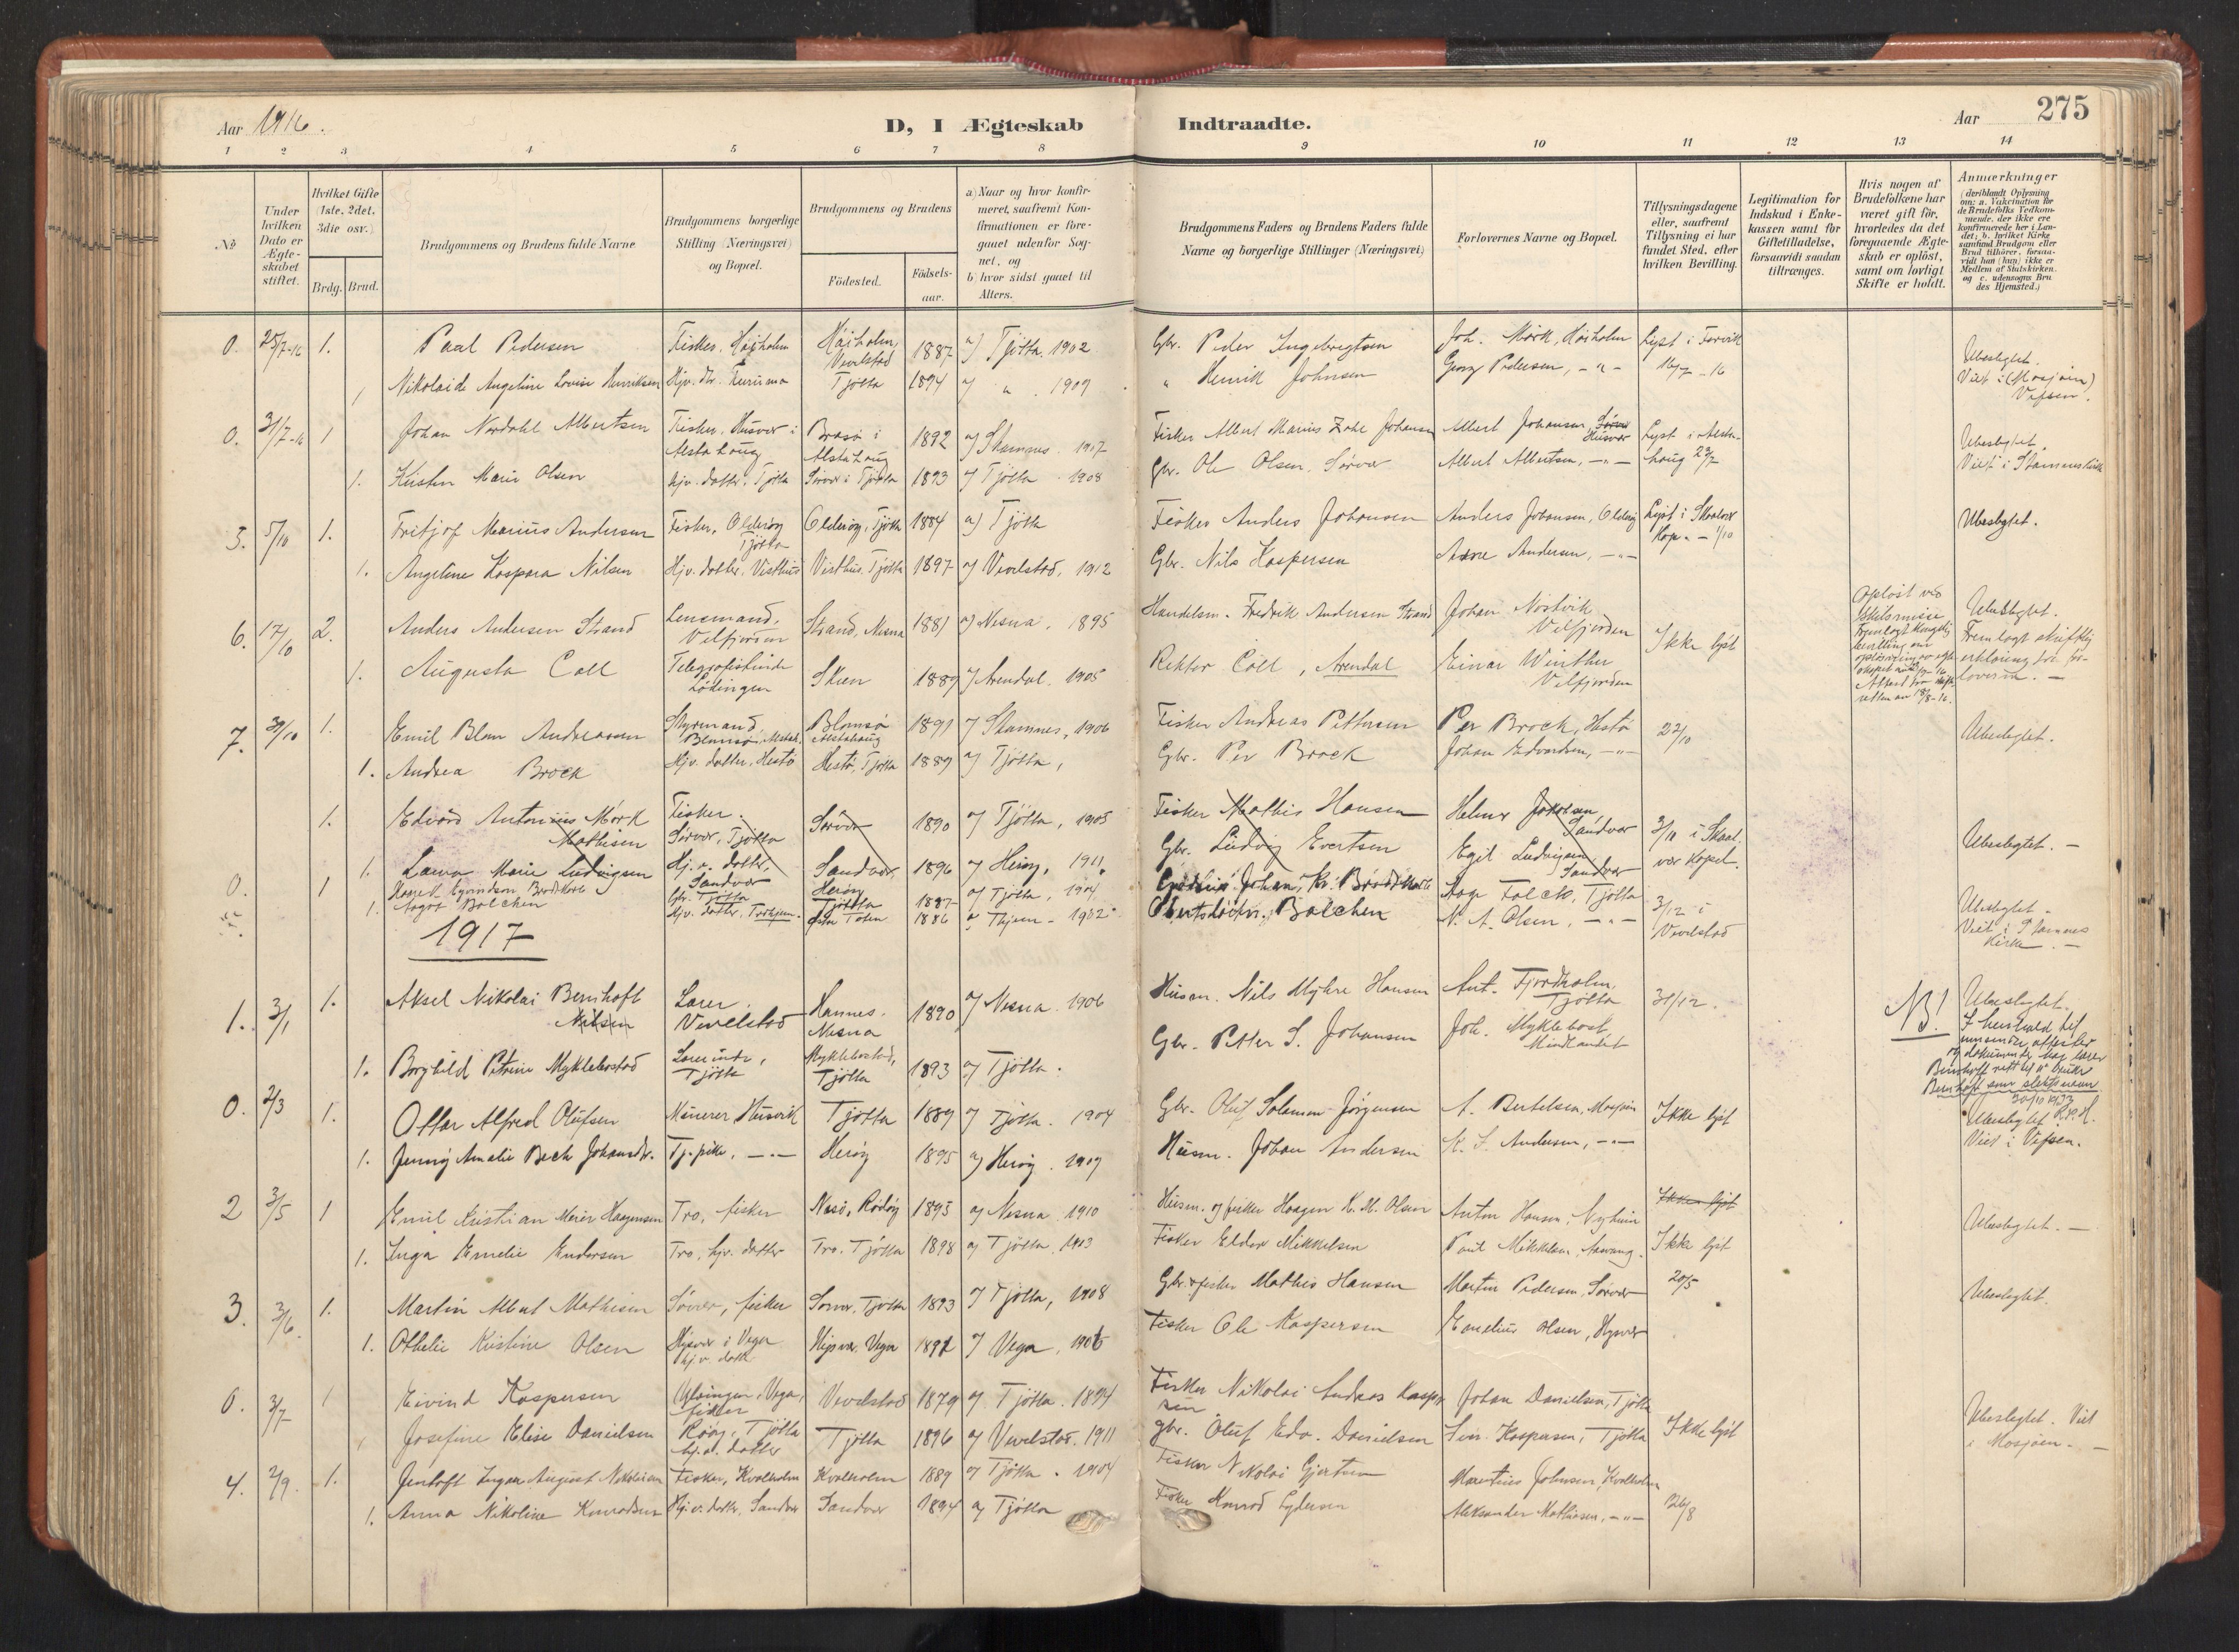 Aar 1916.
D, I Ægteskab Indtraadte.
Aar 275
1 2 3 4 5 6 7 8 9 10 11 12 13 14
No
Under hvilken Dato er Ægteskabet stiftet.
Hvilket Gifte (1ste, 2det, 3die osv.)
Brdg. Brud.
Brudgommens og Brudens fulde Navne
Brudgommens borgerlige Stilling (Næringsvei) og Bopæl.
Brudgommens og Brudens
Fødested.
Fødselsaar.
a) Naar og hvor konfirmeret, saafremt Konfirmationen er foregaaet udenfor Sognet, og
b) hvor sidst gaaet til Alters.
Brudgommens Faders og Brudens Faders fulde Navne og borgerlige Stillinger (Næringsvei)
Forlovernes Navne og Bopæl.
Tillysningsdagene eller, saafremt Tillysning ei har fundet Sted, efter hvilken Bevilling.
Legitimation for Indskud i Enkekassen samt for Giftetilladelse, forsaavidt saadan tiltrænges.
Hvis nogen af Brudefolkene har været gift før, hvorledes da det foregaaende Ægteskab er opløst, samt om lovligt Skifte er holdt.
Anmærkninger
(deriblandt Oplysning om: a. Vakcination for de Brudefolks Vedkommende, der ikke ere konfirmerede her i Landet; b. hvilket Kirkesamfund Brudgom eller Brud tilhører, forsaavidt han (hun) ikke er Medlem af Statskirken, og c. udensogns Brudes Hjemsted.)
0. 25/7-16 1. Paal Pedersen Fisker, Høiholm Høiholm, Vevelstad 1887 a) Tjøtta. 1902 Gbr. Peder Ingebrigtsen Joh. Mørk, Høiholm Lyst i Forvik Ubeslegtet.
1 Nikolaide Angeline Lovise Henriksen Hjv. dtr. Tjøtta 1894 a) " 1909 " Henrik Johnsen Georg Pedersen, -"- 16/7-16 Viet i (Mosjøen) Vefsen.
0. 31/7-16 1 Johan Nordahl Albertsen Fisker, Husvær i Alstahoug Brasø i Alstahoug 1892 a) Stamnes. 1907 Fisker Albert Marius Zahl Johansen Albert Johansen, Husvær Lyst i Alstahoug 23/7 Ubeslegtet.
1. Kirsten Marie Olsen Hjv. datter, Tjøtta Sørvær i Tjøtta 1893 a) Tjøtta. 1908 Gbr. Ole Olsen, Sørvær Albert Albertsen, -"- Viet i Stamnes Kirke
5. 5/10 1. Fritjof Marius Andersen Fisker, Olderøy Tjøtta Olderøy, Tjøtta 1884 a) Tjøtta Fisker Anders Johansen Anders Johansen, Olderøy Lyst i Skaalvær Kap. - 1/10 Ubeslegtet.
1. Angeline Kaspara Nilsen Hjv. datter. Visthus Visthus, Tjøtta 1897 a) Vevelstad, 1912 Gbr. Nils Kaspersen Arne Andersen, -"-
6. 17/10 2. Anders Andersen Strand Lensmand, Velfjorden Strand, Nesna 1881 a) Nesna. 1895 Handelsm. Fredrik Andersen Strand Johan Nostvik Velfjorden Ikke lyst Opløst ved Skilsmisse Fremlagt Kongelig bevilling om opløsning av egteskapet Ubeslegtet. Fremlagt skriftlig erklæring fra forloverne. -
1. Augusta Coll Telegrafistinde Lødingen Skien 1889 a) Arendal. 1905 Rektor Coll, Arendal Einar Winther Velfjorden
7. 30/10 1. Emil Blom Andreassen Styrmand Blomsø, Alstah. Blomsø Alstahoug 1891 a) Stamnes, 1906 Fisker Andreas Pettersen Per Brock, Hestø 22/10 Ubeslegtet.
1. Andrea Brock Hjv. datter, Hestø Hestø, Tjøtta 1889 a) Tjøtta, Gbr. Per Brock Johan Edvardsen, -"-
1. Edvard Antonius Mørk Mathisen Fisker. Sørvær, Tjøtta Sørvær 1890 a) Tjøtta, 1905 Fisker Mathis Hansen Helmer Jakobsen, Sandvær 3/11 i Skaalvær Kapel. Ubeslegtet. -
1. Laura Marie Ludvigsen Hj. v. datter, Sandvær Sandvær 1896 a) Herøy, 1911. Gbr. Ludvig Evertsen Egil Ludvigsen Sandvær
0. 1 Eyvindson Brodtkorb Gbr. Tjøtta Tjøtta 1887 a) Tjøtta, 1904 Johan Kr. Brodtkorb Aage Falck, Tjøtta 3/12 i Vevelstad Ubeslegtet -
1. Aagot Balchen Hjv. datter, Trdhjem. Østre Toten 1886 a Thjem - 1902 Balchen N. A. Olsen, -"- Viet i Stamnes Kirke. -
1917
1. 3/1 1. Aksel Nikolai Bernhoft Nilsen Lærer. Vevelstad Hannes. Nesna 1890 a) Nesna. 1906 Husm. Nils Myhre Hansen Ant. Fjordholm, Tjøtta 31/12. NB! Ubeslegtet.
I henhold til innsendte attester og dokumenter har lærer Bernhoft rett til å bruke Bernhoft som slektsnavn
1. Borghild Petrine Myklebostad Lærerinde, Tjøtta Myklebostad, Tjøtta 1893 a) Tjøtta. Gbr. Petter S. Johansen Joh. Myklebost, Mindlandet
0. 2/3 1. Ottar Alfred Olufsen Murer, Husvik Tjøtta 1889 a) Tjøtta. 1904 Gbr. Oluf Salomon Jørgensen A. Bertelsen, Mosjøen Ikke lyst Ubeslegtet Viet i Vefsen.
1. Jenny Amalie Bech Johansdr. Tj. pike, -"- Herøy 1895 a) Herøy. 1909 Husm. Johan Andersen K. S. Andersen, -"-
2 3/5 1 Emil Kristian Meier Haagensen Tro, fisker Nesø, Rødøy 1895 a) Nesna. 1910 Husm. og fisker Haagen K. M. Olsen Anton Hansen, Nyheim Ikke lyst Ubeslegtet. -
1. Inga Emelie Endersen Tro, hjv. datter Tro. Tjøtta 1898 a) Tjøtta. 1913 Fisker Eldor Mikkelsen Paul Mikkelsen, Ikke lyst
3. 3/6. 1. Martin Albert Mathisen Sørvær, fisker Sørvær, Tjøtta 1893 a) Tjøtta, 1908 Gbr. & fisker Mathis Hansen Martin Pedersen, Sørvær 20/5 Ubeslegtet.
1. Othelie Kristine Olsen Hysvær i Vega hj. v. datt. Hysvær, Vega 1891 a) Vega, 1906 Fisker Ole Kaspersen Emelius Olsen, Hysvær
0. 3/7 1 Eivind Kaspersen Ylvingen, Vega, fisker Vevelstad 1879 a) Tjøtta. 1894 Fisker Nikolai Andreas Kaspersen Johan Danielsen, Tjøtta Ikke lyst Ubeslegtet. Viet i Mosjøen. -
1 Josefine Elise Danielsen Røøy, Tjøtta hj. v. datter Tjøtta 1896 a) Vevelstad. 1911 Gbr. Oluf Edv. Danielsen Kaspersen, Tjøtta
4. 2/9. 1. Jentoft Ingar August Nikolaisen Fisker, Kvalholm Kvalholmen 1889 a) Tjøtta. 1904 Fisker Nikolai Gjertsen Marentius Johnsen, Kvalholmen 26/8
1. Anna Nikoline Konradsen Hj. v. datter, Sandvær Sandvær 1894 a) Tjøtta Fisker Konrad Eydersen Aleksander Mathiesen, -"-